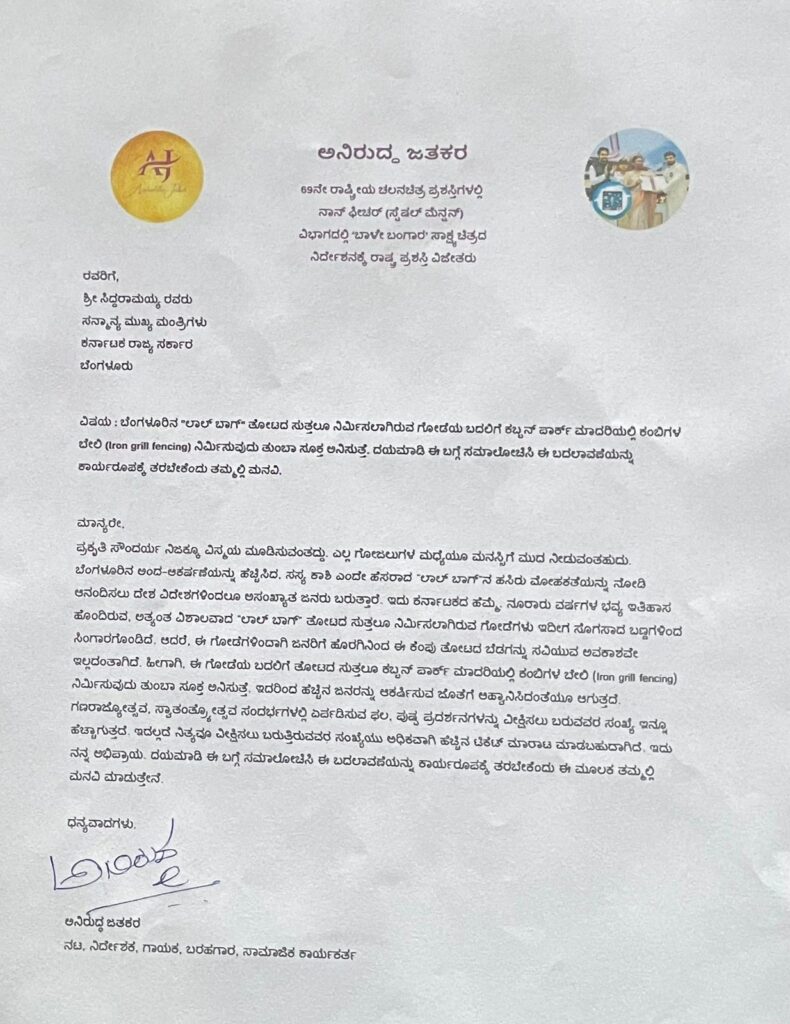 AJ
ಅನಿರುದ್ಧ ಜತಕರ
69ನೇ ರಾಷ್ಟ್ರೀಯ ಚಲನಚಿತ್ರ ಪ್ರಶಸ್ತಿಗಳಲ್ಲಿ
ನಾನ್ ಫೀಚರ್ (ಸ್ಪೆಷಲ್ ಮೆನ್ಷನ್)
ವಿಭಾಗದಲ್ಲಿ 'ಬಾಳೇ ಬಂಗಾರ' ಸಾಕ್ಷ್ಯಚಿತ್ರದ
ನಿರ್ದೇಶನಕ್ಕೆ ರಾಷ್ಟ್ರ ಪ್ರಶಸ್ತಿ ವಿಜೇತರು
ರವರಿಗೆ,
ಶ್ರೀ ಸಿದ್ದರಾಮಯ್ಯ ರವರು
ಸನ್ಮಾನ್ಯ ಮುಖ್ಯ ಮಂತ್ರಿಗಳು
ಕರ್ನಾಟಕ ರಾಜ್ಯ ಸರ್ಕಾರ
ಬೆಂಗಳೂರು
ವಿಷಯ : ಬೆಂಗಳೂರಿನ "ಲಾಲ್ ಬಾಗ್" ತೋಟದ ಸುತ್ತಲೂ ನಿರ್ಮಿಸಲಾಗಿರುವ ಗೋಡೆಯ ಬದಲಿಗೆ ಕಬ್ಬನ್ ಪಾರ್ಕ್ ಮಾದರಿಯಲ್ಲಿ ಕಂಬಿಗಳ
ಬೇಲಿ (Iron grill fencing) ನಿರ್ಮಿಸುವುದು ತುಂಬಾ ಸೂಕ್ತ ಅನಿಸುತ್ತೆ. ದಯಮಾಡಿ ಈ ಬಗ್ಗೆ ಸಮಾಲೋಚಿಸಿ ಈ ಬದಲಾವಣೆಯನ್ನು
ಕಾರ್ಯರೂಪಕ್ಕೆ ತರಬೇಕೆಂದು ತಮ್ಮಲ್ಲಿ ಮನವಿ.
ಮಾನ್ಯರೇ,
ಪ್ರಕೃತಿ ಸೌಂದರ್ಯ ನಿಜಕ್ಕೂ ವಿಸ್ಮಯ ಮೂಡಿಸುವಂತದ್ದು. ಎಲ್ಲ ಗೋಜಲುಗಳ ಮಧ್ಯೆಯೂ ಮನಸ್ಸಿಗೆ ಮುದ ನೀಡುವಂತಹುದು.
ಬೆಂಗಳೂರಿನ ಅಂದ-ಆಕರ್ಷಣೆಯನ್ನು ಹೆಚ್ಚಿಸಿದ, ಸಸ್ಯ ಕಾಶಿ ಎಂದೇ ಹೆಸರಾದ "ಲಾಲ್ ಬಾಗ್"ನ ಹಸಿರು ಮೋಹಕತೆಯನ್ನು ನೋಡಿ
ಆನಂದಿಸಲು ದೇಶ ವಿದೇಶಗಳಿಂದಲೂ ಅಸಂಖ್ಯಾತ ಜನರು ಬರುತ್ತಾರೆ. ಇದು ಕರ್ನಾಟಕದ ಹೆಮ್ಮೆ. ನೂರಾರು ವರ್ಷಗಳ ಭವ್ಯ ಇತಿಹಾಸ
ಹೊಂದಿರುವ, ಅತ್ಯಂತ ವಿಶಾಲವಾದ "ಲಾಲ್ ಬಾಗ್" ತೋಟದ ಸುತ್ತಲೂ ನಿರ್ಮಿಸಲಾಗಿರುವ ಗೋಡೆಗಳು ಇದೀಗ ಸೊಗಸಾದ ಬಣ್ಣಗಳಿಂದ
ಸಿಂಗಾರಗೊಂಡಿದೆ. ಆದರೆ, ಈ ಗೋಡೆಗಳಿಂದಾಗಿ ಜನರಿಗೆ ಹೊರಗಿನಿಂದ ಈ ಕೆಂಪು ತೋಟದ ಬೆಡಗನ್ನು ಸವಿಯುವ ಅವಕಾಶವೇ
ಇಲ್ಲದಂತಾಗಿದೆ. ಹೀಗಾಗಿ, ಈ ಗೋಡೆಯ ಬದಲಿಗೆ ತೋಟದ ಸುತ್ತಲೂ ಕಬ್ಬನ್ ಪಾರ್ಕ್ ಮಾದರಿಯಲ್ಲಿ ಕಂಬಿಗಳ ಬೇಲಿ (Iron grill fencing)
ನಿರ್ಮಿಸುವುದು ತುಂಬಾ ಸೂಕ್ತ ಅನಿಸುತ್ತೆ. ಇದರಿಂದ ಹೆಚ್ಚಿನ ಜನರನ್ನು ಆಕರ್ಷಿಸುವ ಜೊತೆಗೆ ಆಹ್ವಾನಿಸಿದಂತೆಯೂ ಆಗುತ್ತದೆ.
ಗಣರಾಜ್ಯೋತ್ಸವ, ಸ್ವಾತಂತ್ರ್ಯೋತ್ಸವ ಸಂದರ್ಭಗಳಲ್ಲಿ ಏರ್ಪಡಿಸುವ ಫಲ, ಪುಷ್ಪ ಪ್ರದರ್ಶನಗಳನ್ನು ವೀಕ್ಷಿಸಲು ಬರುವವರ ಸಂಖ್ಯೆ ಇನ್ನೂ
ಹೆಚ್ಚಾಗುತ್ತದೆ. ಇದಲ್ಲದೆ ನಿತ್ಯವೂ ವೀಕ್ಷಿಸಲು ಬರುತ್ತಿರುವವರ ಸಂಖ್ಯೆಯು ಅಧಿಕವಾಗಿ ಹೆಚ್ಚಿನ ಟಿಕೆಟ್ ಮಾರಾಟ ಮಾಡಬಹುದಾಗಿದೆ. ಇದು
ನನ್ನ ಅಭಿಪ್ರಾಯ. ದಯಮಾಡಿ ಈ ಬಗ್ಗೆ ಸಮಾಲೋಚಿಸಿ ಈ ಬದಲಾವಣೆಯನ್ನು ಕಾರ್ಯರೂಪಕ್ಕೆ ತರಬೇಕೆಂದು ಈ ಮೂಲಕ ತಮ್ಮಲ್ಲಿ
ಮನವಿ ಮಾಡುತ್ತೇನೆ.
ಧನ್ಯವಾದಗಳು.
ಅನಿರುದ್ಧ ಜತಕರ
ನಟ, ನಿರ್ದೇಶಕ, ಗಾಯಕ, ಬರಹಗಾರ, ಸಾಮಾಜಿಕ ಕಾರ್ಯಕರ್ತ